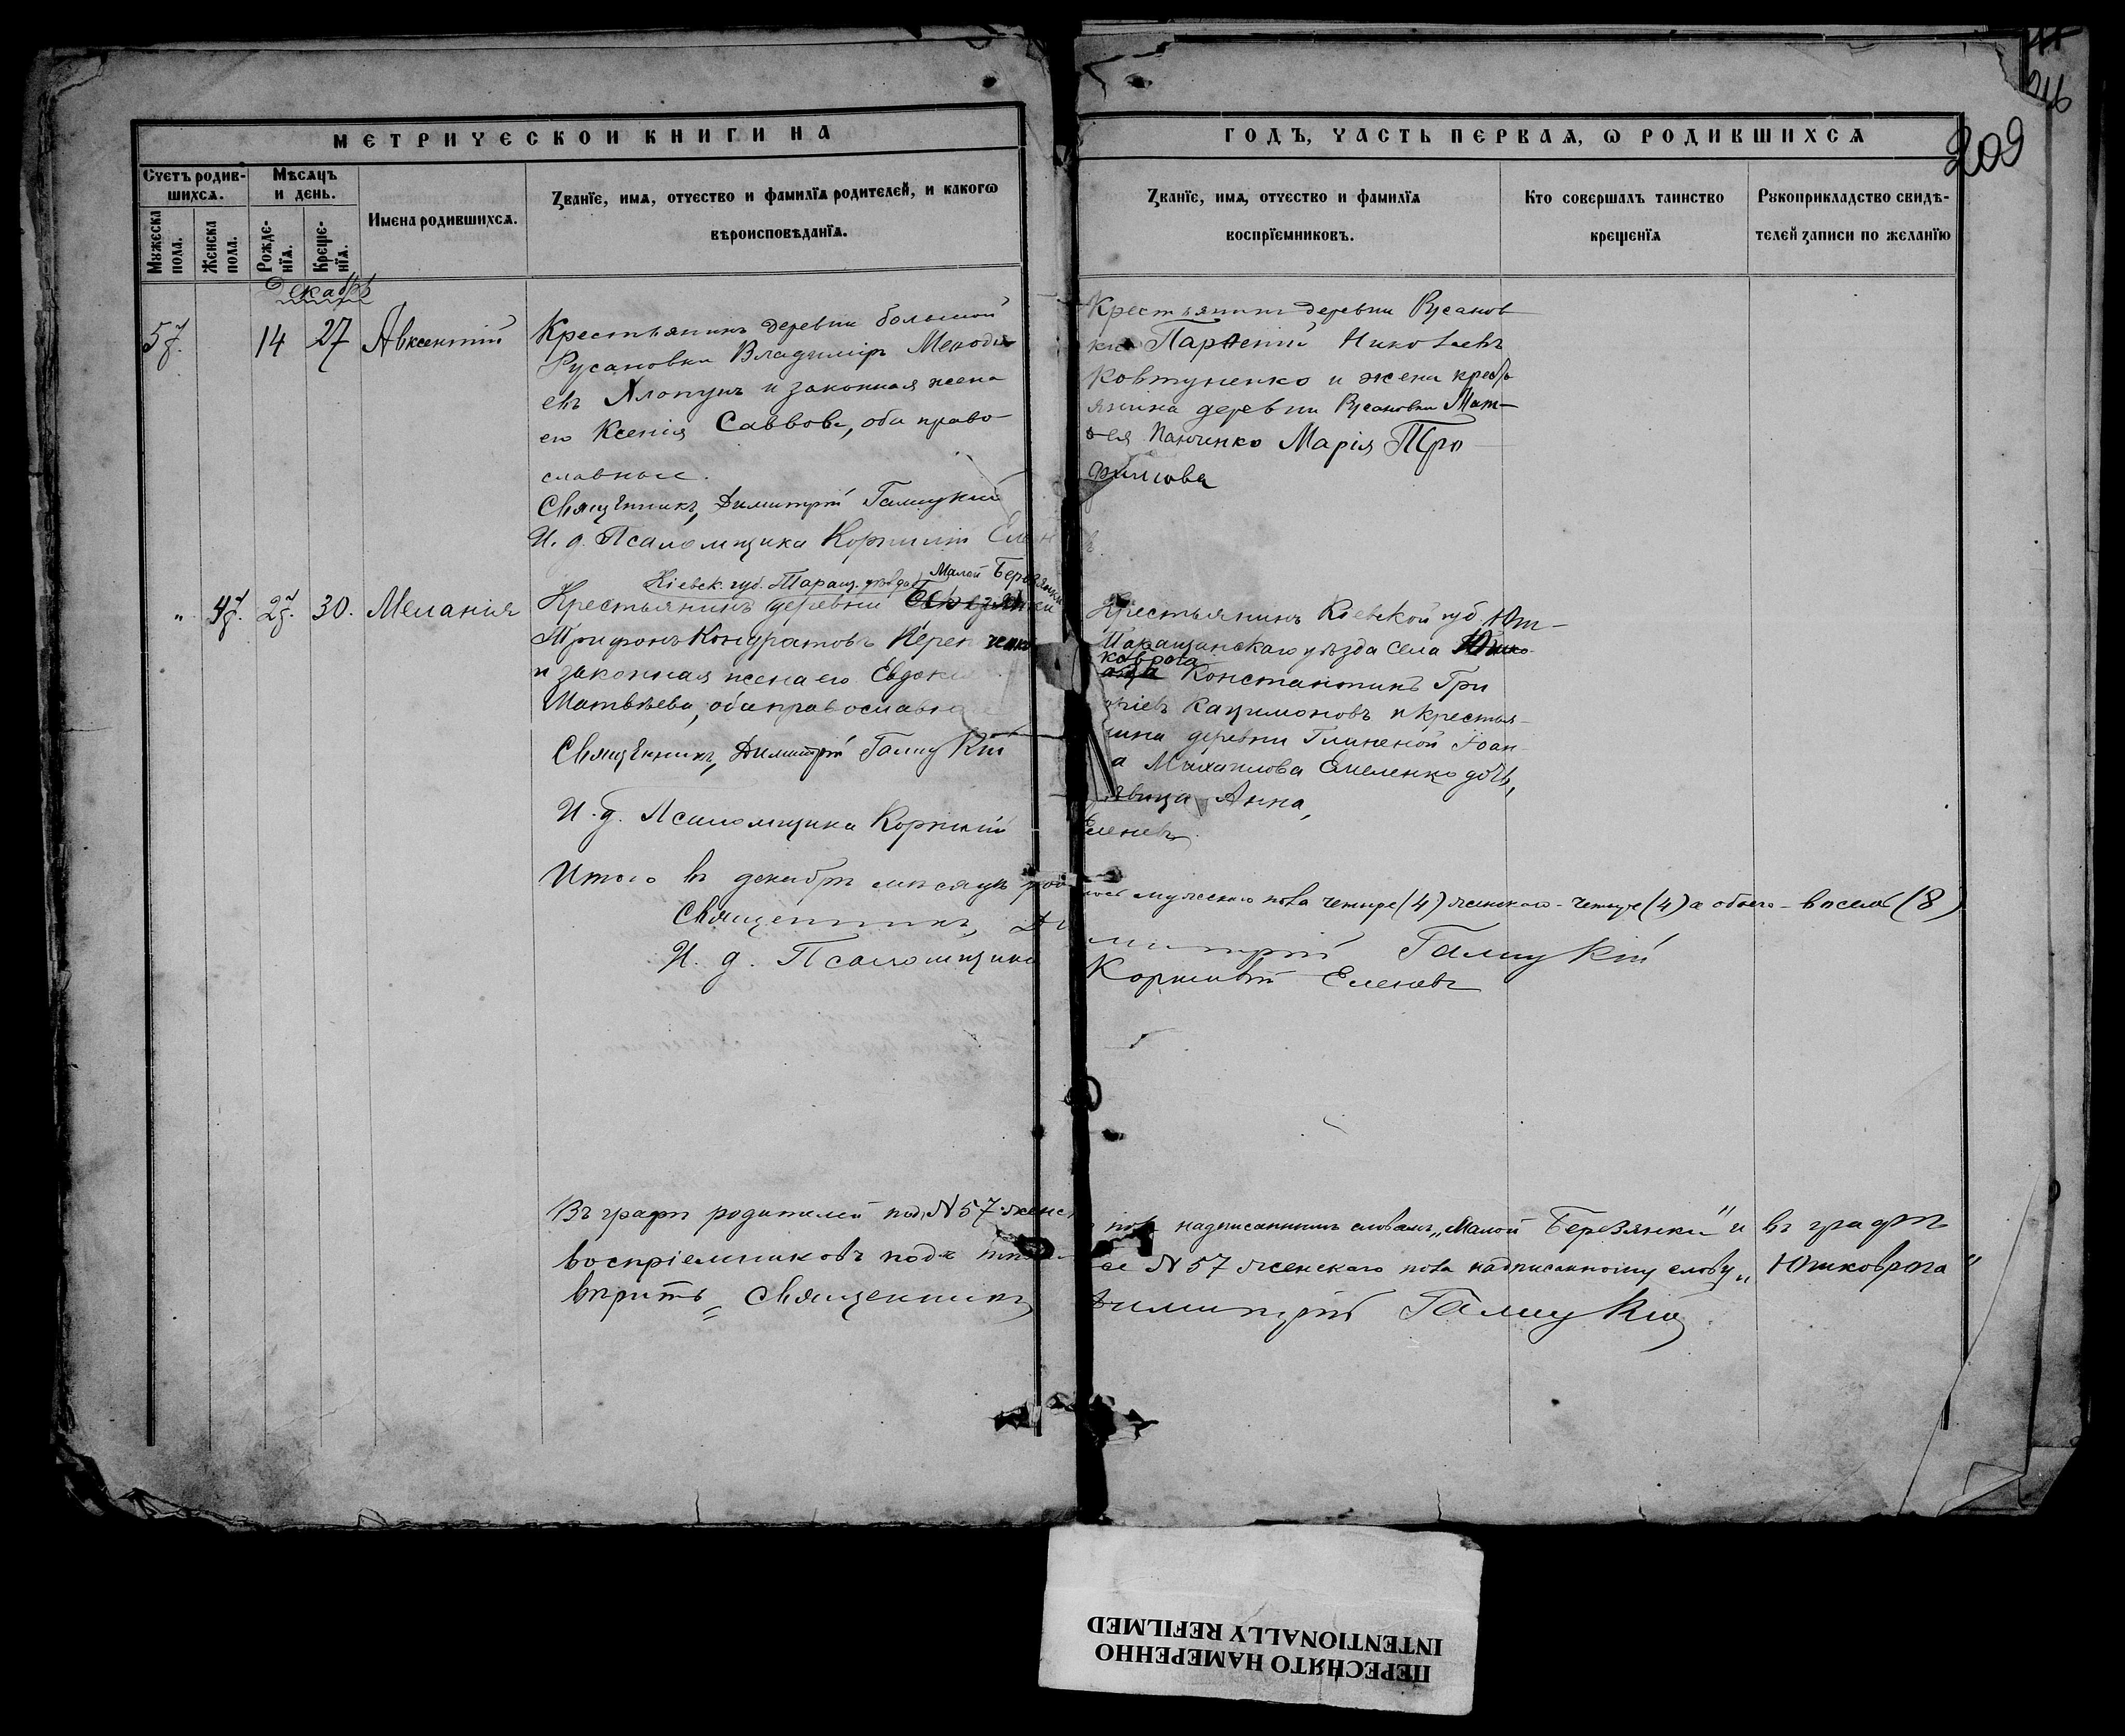 209
МЕТРИЧЕСКОЙ КНИГИ НА
ГОДЪ, ЧАСТЬ ПЕРВАѦ, Ѡ РОДИВШИХСѦ
Счетъ родив-
шихсѧ.
Мѣсѧцъ
и день.
Мꙋжеска
пола.
Женска
пола.
Рожде-
нїѧ.
Креще-
нїѧ.
Имена родившихсѧ.
Званїе, имѧ, отчество и фамилїѧ родителей, и какогѡ
вѣроисповѣданїѧ.
Званїе, имѧ, отчество и фамилїѧ
воспрїемниковъ.
Кто совершалъ таинство
крещенїѧ
Рꙋкоприкладство свидѣ-
телей записи по желанїю
Декабрь
57.
14
27
Авксентій
Крестьянинъ деревни большой
Русановки Владиміръ Мефодіе
евъ Хлопунъ и законная жена
его Ксенія Саввова, оба право-
славные.
Священникъ, Димитрій Галицкій
И. д. Псаломщика Корнилій
Крестьянинъ деревни Русанов
Парѳеній Николаевъ
Ковтуненко и жена крестья
янина деревни Русановки Мат-
ѳея Панченко Марія Тро
фимова
"
57.
27.
30.
Меланія
Кіевск. губ. Таращ. уѣзда Малой Березянки
Крестьянинъ деревни
Трифонъ Кондратовъ
и законная жена его
Матвѣева, оба православн
Священникъ, Димитрій Галицкій
И. д. Псаломщика Корнилій
Крестьянинъ Кіевской губ. Юш-
Таращанскаго уѣзда села
коврога
Константинъ Гри
крестья-
деревни Іоан-
а Михаилова Емеленко дочь,
ѣвица Анна,
Еленевъ
Итого въ декабрѣ мѣсяцѣ ро лось мужескаго пола четыре (4) женскаго - четыре (4) а обоего - восемь (8)
Священникъ, Димитрій Галицкій
И. д. Псаломщика Корнилій Еленевъ
Въ графѣ родителей под. № 57 женск пола надписаннымъ словамъ „Малой Березянки" и въ графѣ
воспріемниковъ подъ № 57 женскаго пола надписанному слову „Юшковрога"
вѣрить = Священникъ Димитрій Галицкій
ПЕРЕСНЯТО НАМЕРЕННО
INTENTIONALLY REFILMED